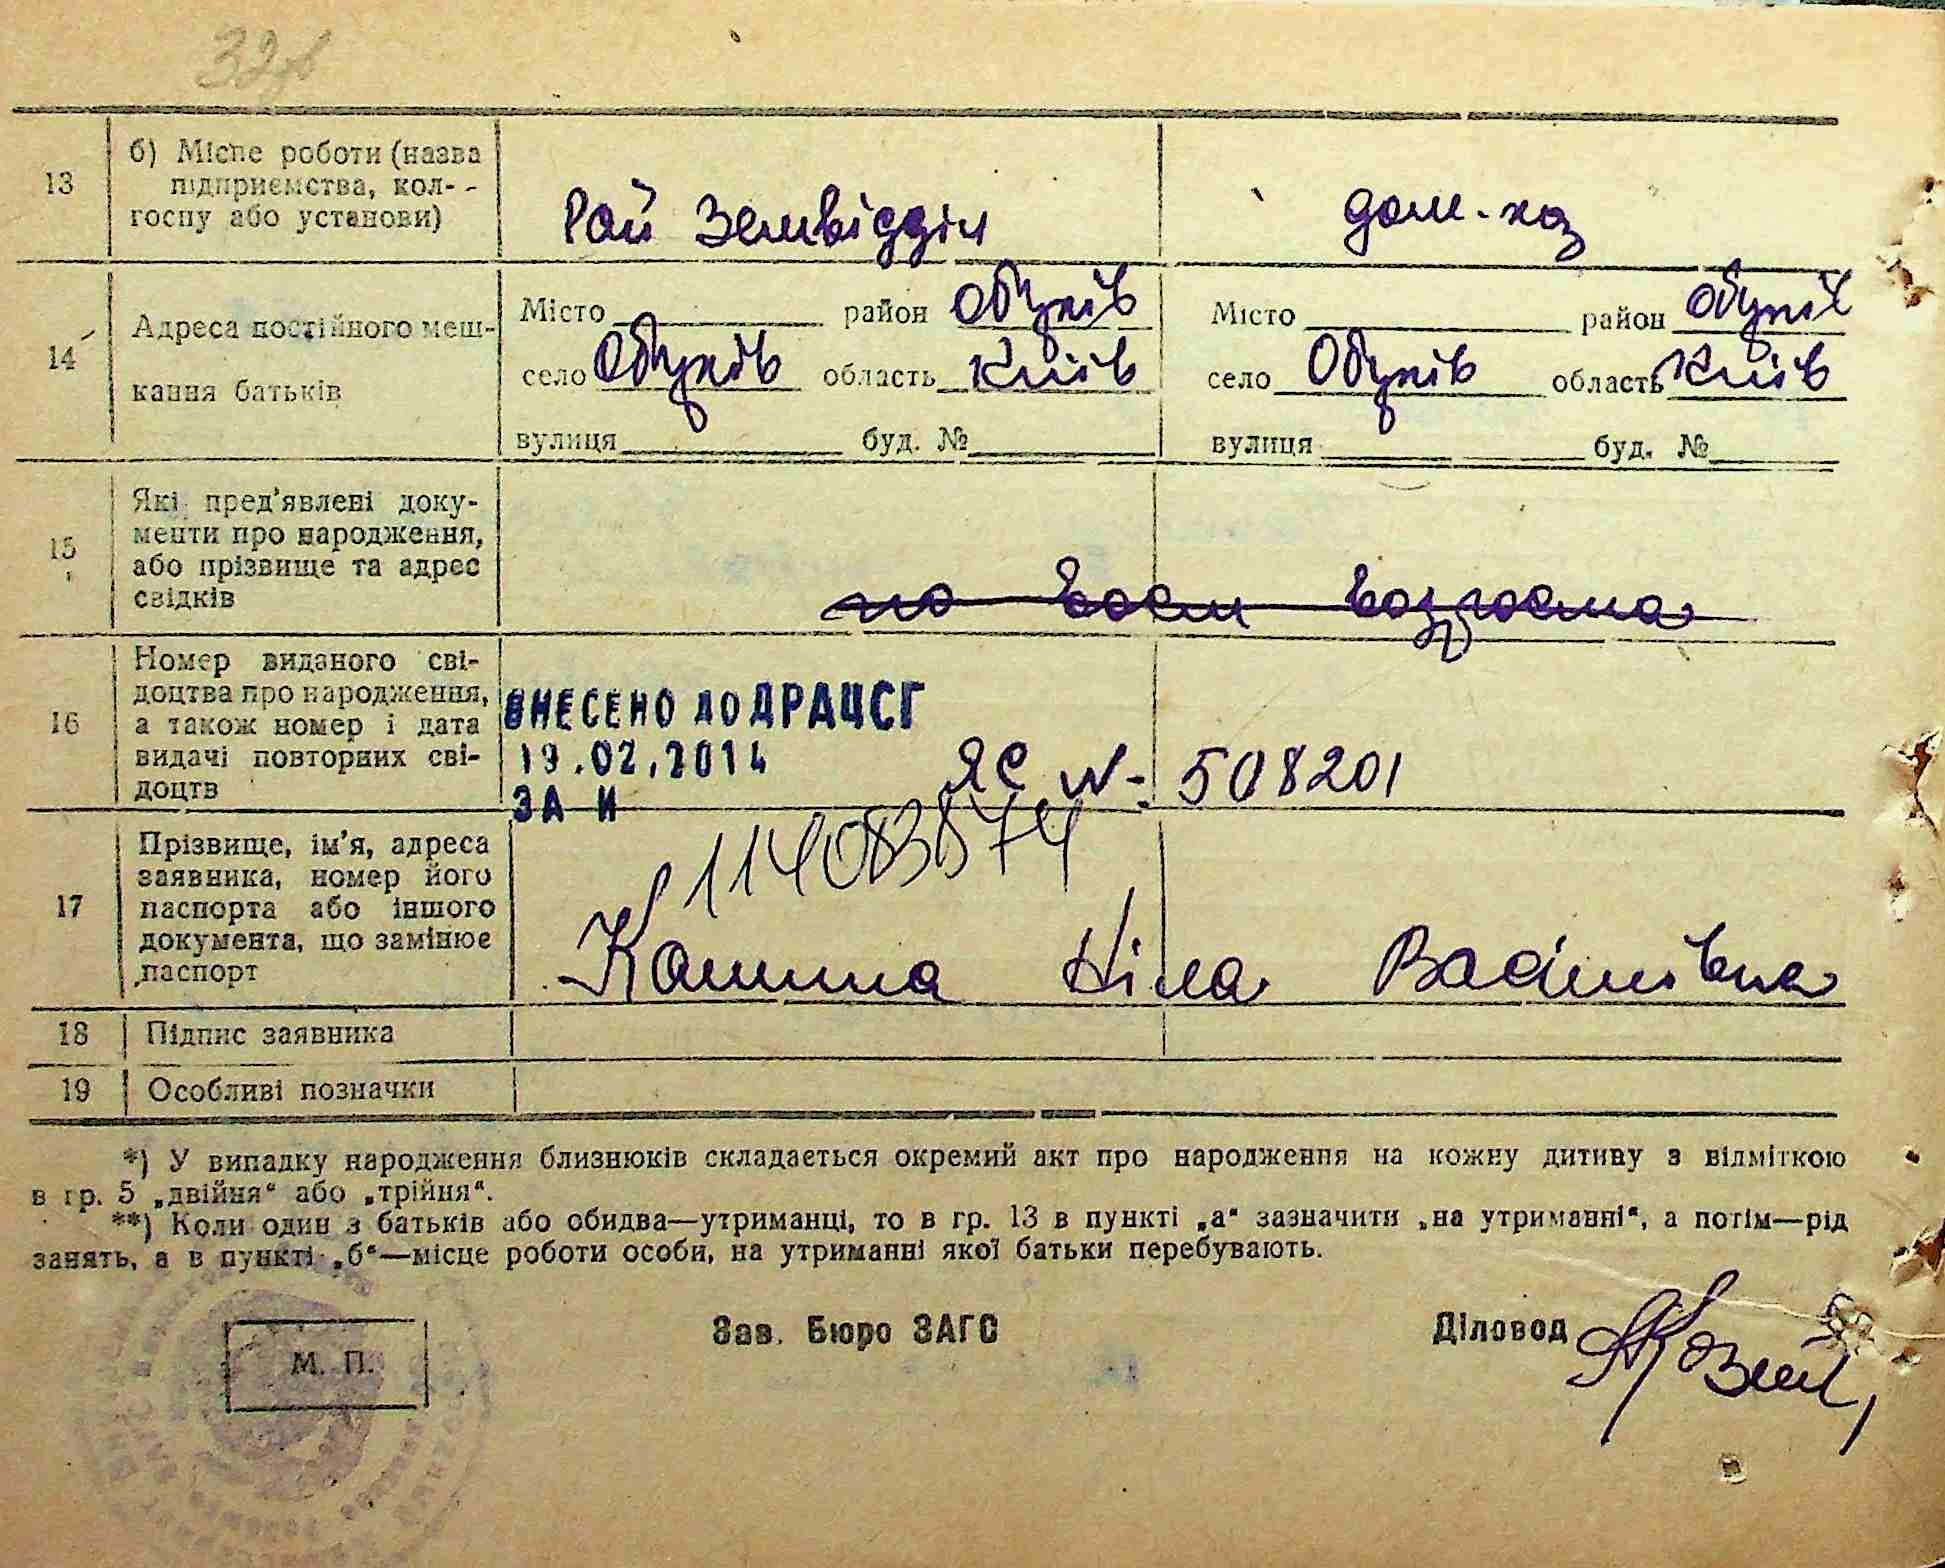 32зв
13
б) Місце роботи (назва
підприємства, кол-
госпу або установи)
Рай Земвідділ
дом-хоз
14
Адреса постійного меш-
кання батьків
Місто район Обухів
село Обухів область Київ
вулиця буд. №
Місто район Обухів
село Обухів область Київ
вулиця буд. №
15
Які пред'явлені доку-
менти про народження,
або прізвище та адрес
свідків
по воест возроста
16
Номер виданого сві-
доцтва про народження,
а також номер і дата
видачі повторних сві-
доцтв
ВНЕСЕНО ДО ДРАЦСГ
19.02.2014
ЗА И
ЯС № 508201
17
Прізвище, ім'я, адреса
заявника, номер його
паспорта або іншого
документа, що замінює
паспорт
Ніла Василівна
18
Підпис заявника
19
Особливі позначки
*) У випадку народження близнюків складається окремий акт про народження на кожну дитину з відміткою
в гр. 5 „двійня“ або „трійня“.
**) Коли один з батьків або обидва—утриманці, то в гр. 13 в пункті „а“ зазначити „на утриманні“, а потім—рід
занять, а в пункті „б“—місце роботи особи, на утриманні якої батьки перебувають.
М. П.
Зав. Бюро ЗАГС
Діловод